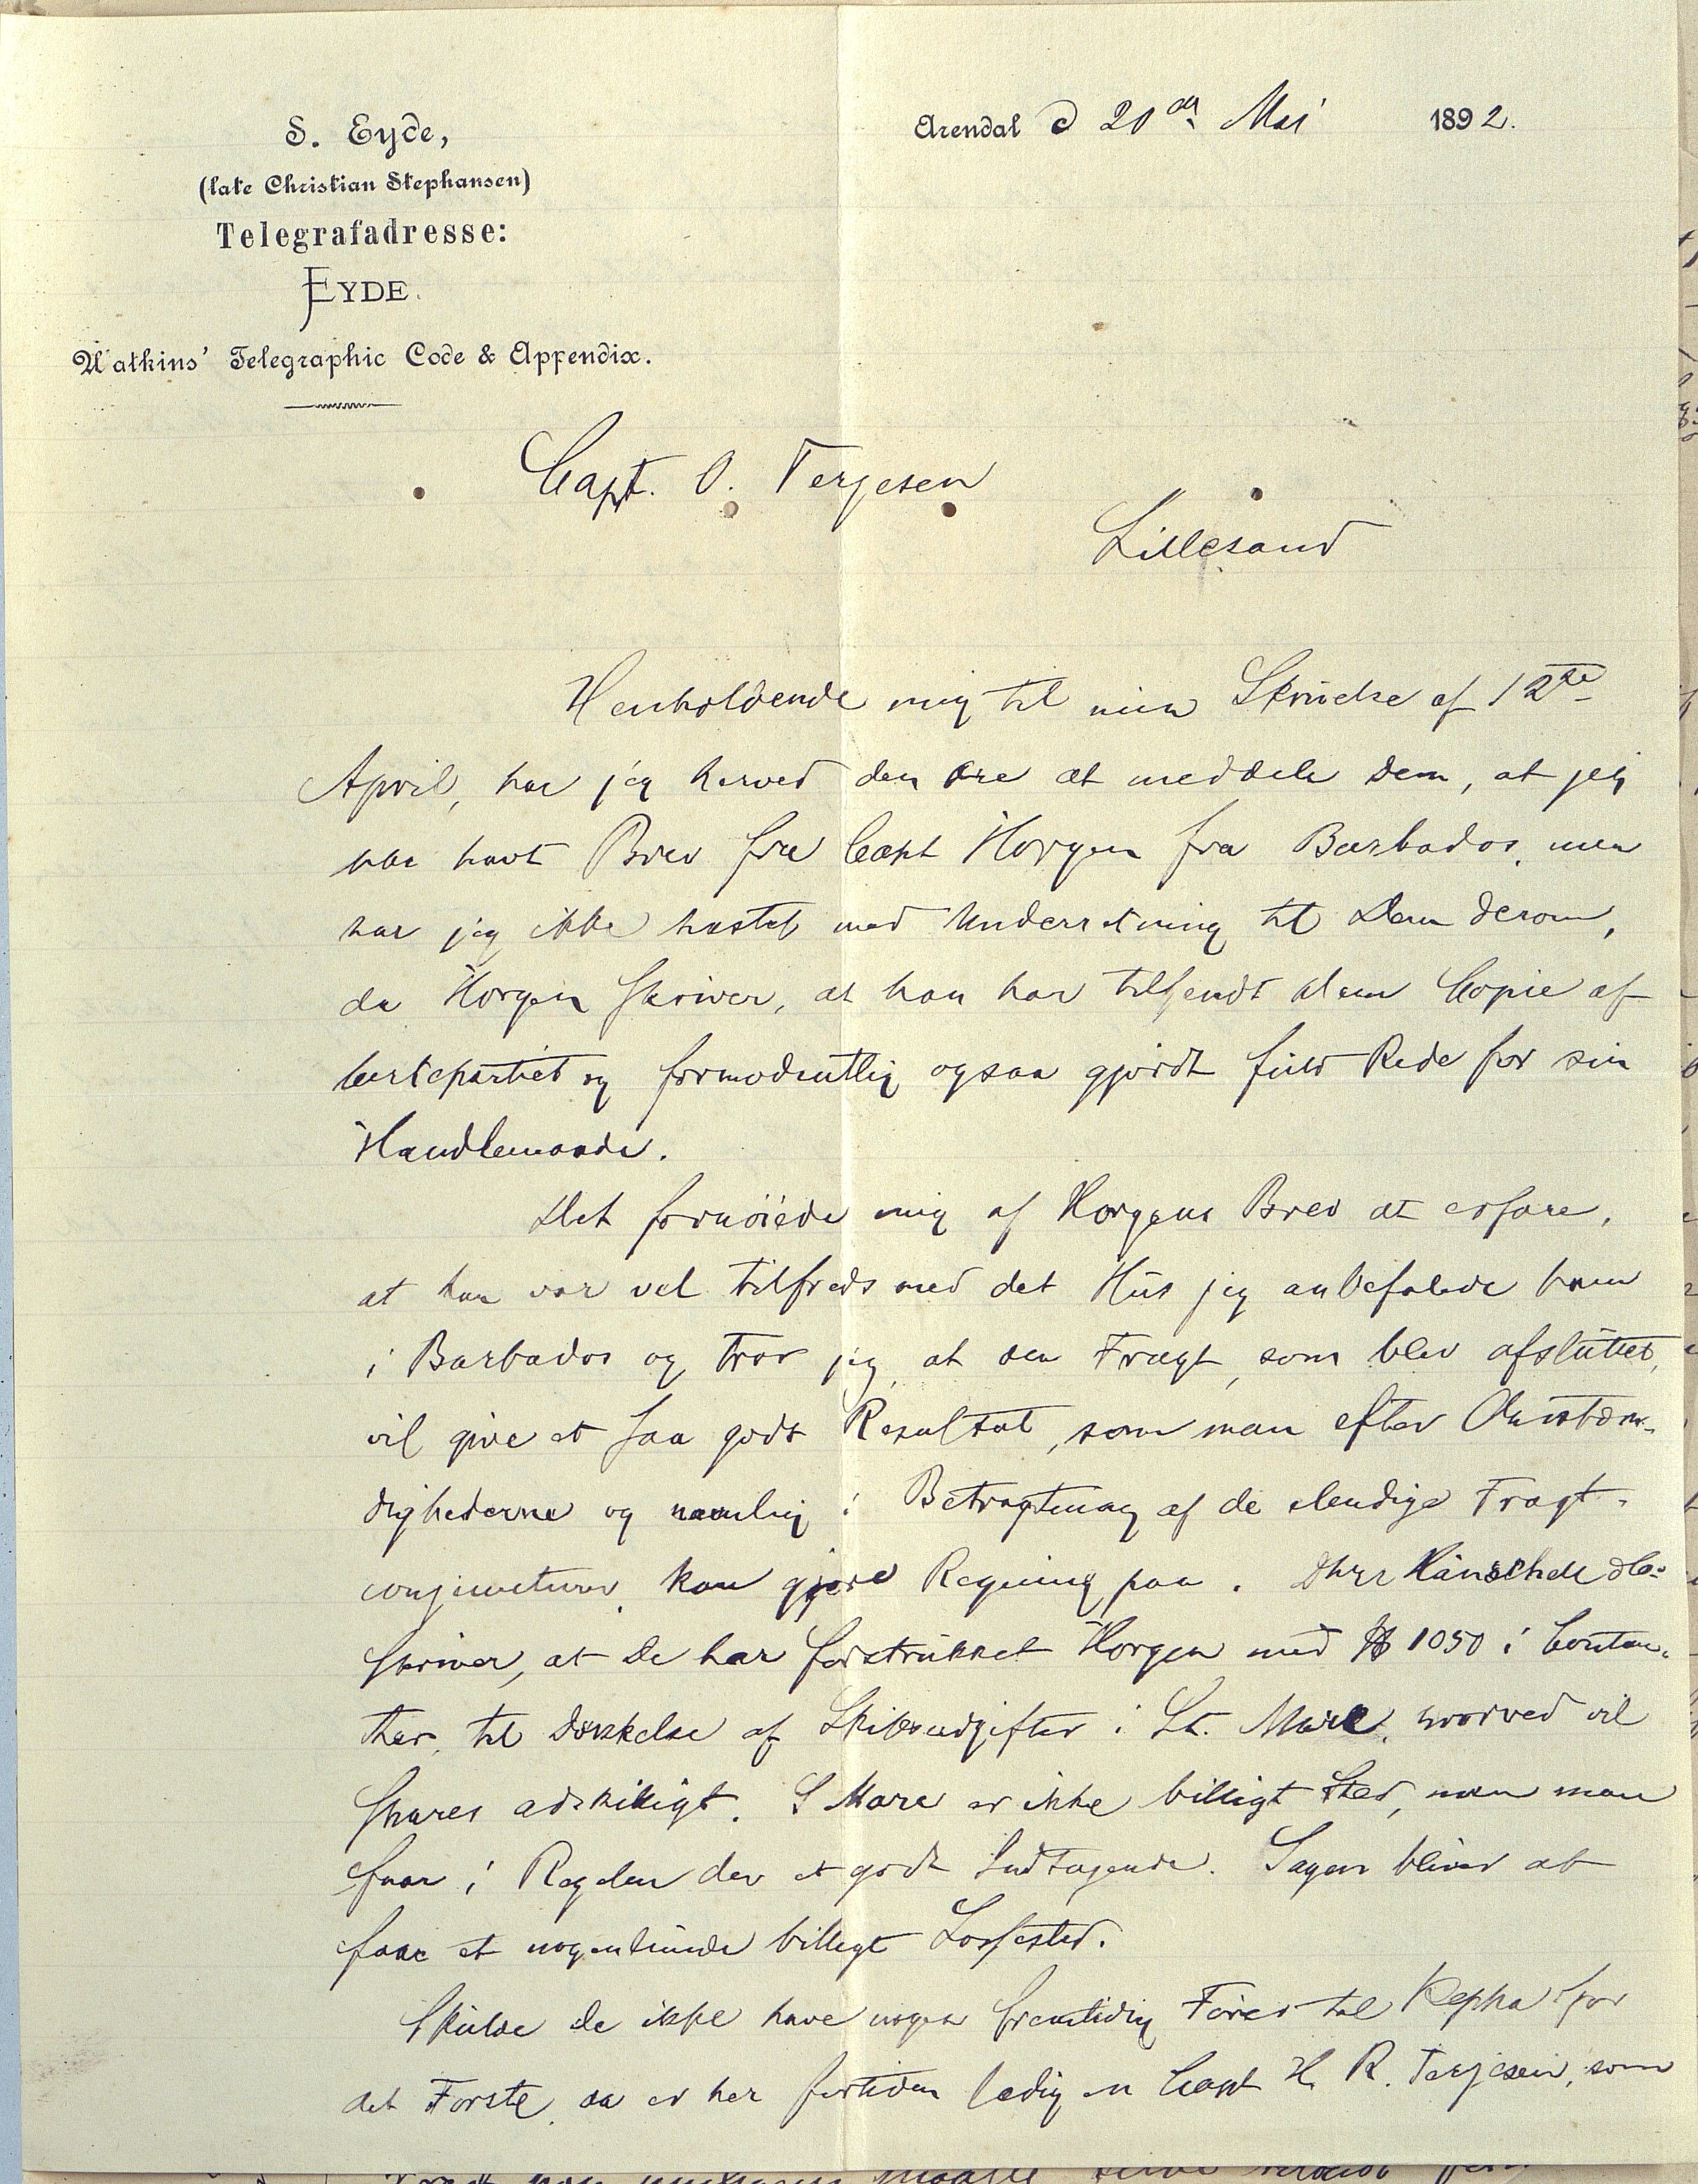 S. Eyde,
(late Christian Stephansen)
Telegrafadresse:
EYDE.
Watkins' Telegraphic Code & Appendix.
Arendal d 20de Mai 1892.
Capt. O. Terjesen
Lillesand
Henholdende mig til min Skrivelse af 12te
April, har jeg herved den Ære at meddele Dem, at jeg
har havt Brev fra Capt Horgen fra Barbados, men
har jeg ikke hastet med Underretning til Dem derom,
da Horgen skriver, at han har tilsendt Dem Copie af
Certepartiet og formodentlig ogsaa gjordt fuld Rede for sin
Handlemaade.
Det fornøiede mig af Horgens Brev at erfare,
at han var vel tilfreds med det Hus jeg anbefalede ham
i Barbados og tror jeg, at den Fragt, som blev afsluttet,
vil give et saa godt Resultat, som man efter Omstæn-
dighederne og navnlig i Betragtning af de elendige Fragt-
conjuncturer, kan gjøre Regning paa. Dhrr Hänschell &Co
skriver, at de har forstrukket Horgen med $ 1050 i Contan-
ter, til Dækkelse af Skibsudgifter i St. Marc, hvorved vil
spares adskilligt. S Marc er ikke billigt Sted, men man
faar i Regelen der et godt Indtagende. Sagen bliver at
faae et nogenlunde billigt Lossested.
Skulde De ikke have nogen fremtidig Fører til Kepha for
det Første, saa er her fortiden ledig en Capt H. R. Terjesen, som